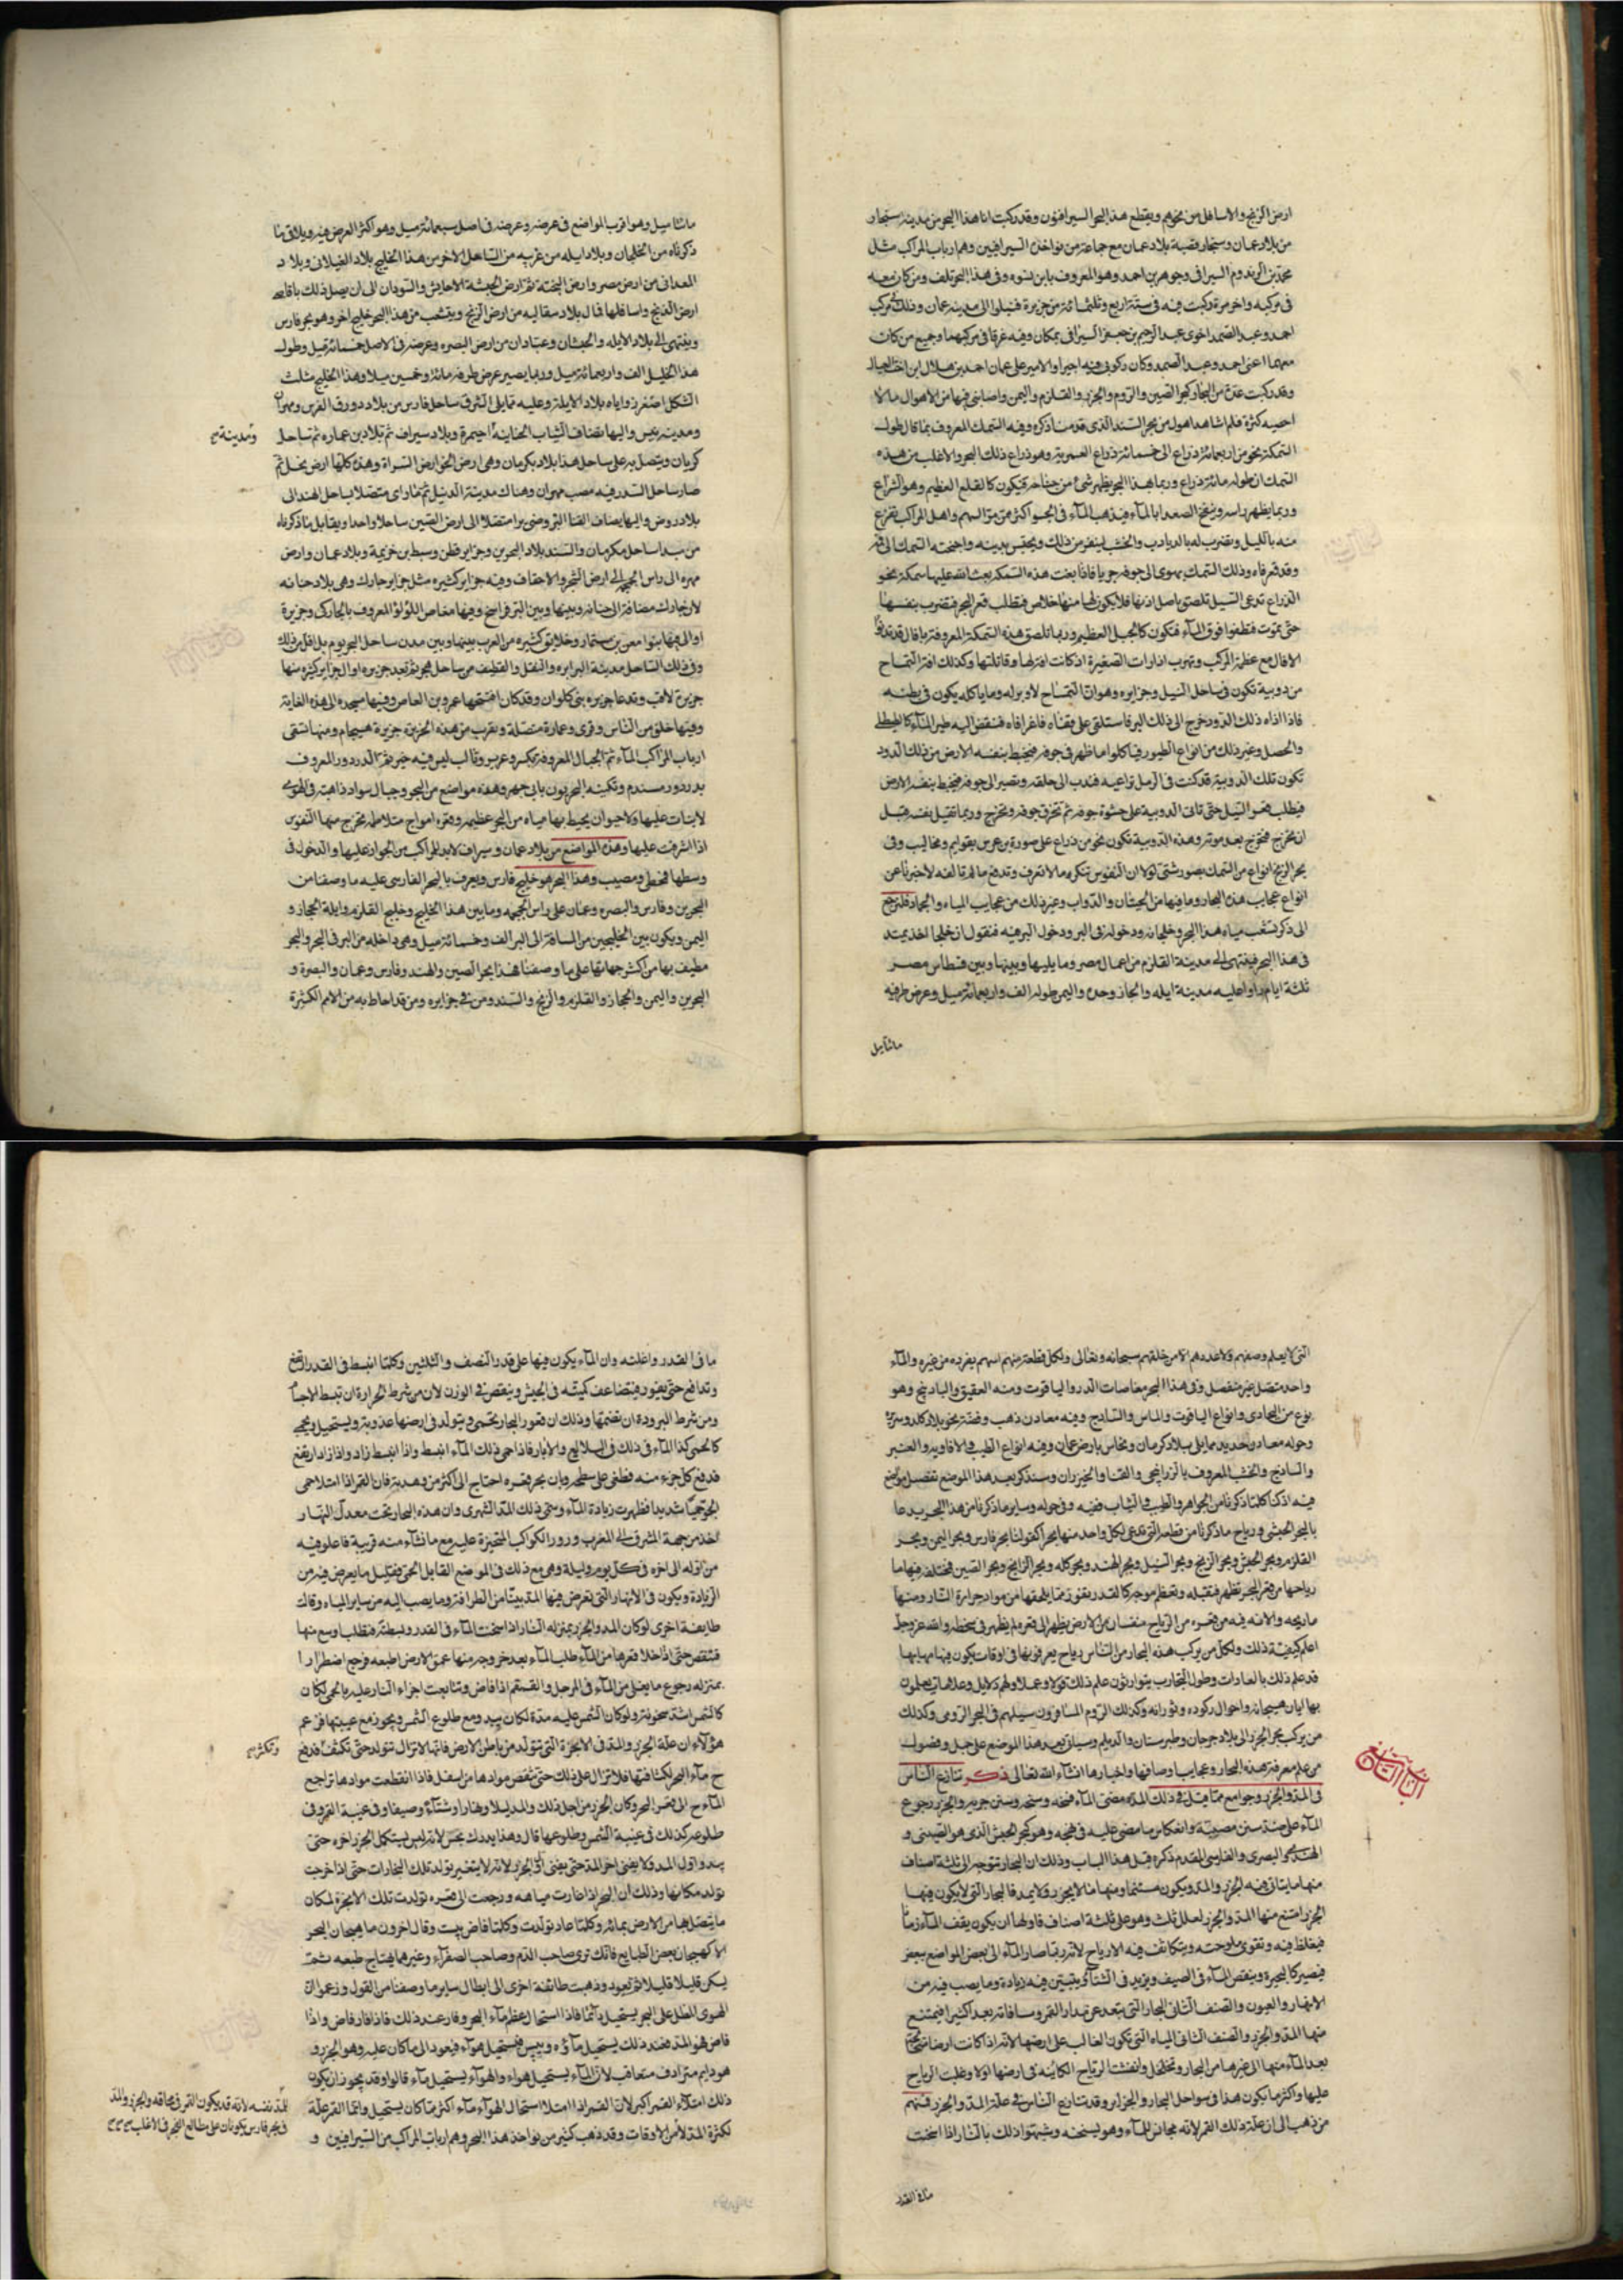 ارض الزنج والاسافل من بحرهم ويقطع هذا البحر السيرافيون وقد ركبت انا هذا البحر من مدينة سنجار
من بلاد عمان وسنجار قصبة بلاد عمان مع جماعة من نواخذة السيرافيين وهم ارباب المراكب مثل
محمد بن الزيدوم السيرافى وجوهر بن احمد وهو المعروف بابن سوه وفى هذا البحر تلف ومن كان معه
فى مركبه واخر مرة ركبت فيه فى سنة اربع وثلثمائة من جزيرة قنبلوا الى مدينة عمان وذلك فى مركب
احمد وعبد الصمد اخوى عبد الرحيم بن جعفر السيرافى بمكان وفيه غرقا فى مركبهما وجميع من كان
معهما اعنى احمد وعبد الصمد وكان ركوبى فيه اخيرا والامير على عمان احمد بن هلال ابن اخت
وقد ركبت عدة من البحار كبحر الصين والروم والخزر والقلزم واليمن واصابنى فيها من الاهوال ما لا
احصيه كثرة فلم اشاهد اهول من بحر السند الذى قدمنا ذكره وفيه السمك المعروف بما قال طول
السمكة نحو من اربعمائة ذراع الى خمسمائة ذراع العمرية وهو ذراع ذلك البحر والاغلب من هذه
السمك ان طوله مائة ذراع وربما يهذا البحر يظهر شئ من جناحه فيكون كالقلع العظيم وهو الشراع
وربما يظهر راسه وينفخ الصعدا بالماء فيذهب الماء فى الجو اكثر من ممر السهم واهل المراكب تفزع
منه بالليل وتضرب له بالدبادب والخشب لينفر من ذلك ويحبس بدنيه واجنحته السمك الى فمه
وقد فغر فاه وذلك السمك يهوى الى جوفه جريا فاذا بغت هذه السمكة بعث الله عليها سمكة نحو
الذراع تدعى السيل تلصق باصل اذنها فلا يكون لها منها خلاص فتطلب قعر البحر فتضرب بنفسها
حتى تموت فتطفوا فوق الماء فتكون كالجبل العظيم وربما تلصق هذه السمكة المعروفة
الافال مع عظمة المركب وتهرب اذا رات الصغيرة اذ كانت افة لها وقاتلتها وكذلك افة التمساح
من دويبة تكون فى ساحل النيل وجزايره وهو ان التمساح لا دبر له وما ياكله يكون فى بطنه
فاذا اذاه ذلك الدود خرج الى ذلك البر فاستلقى على قفاه فاغرا فاه فتنقض اليه طير الماء كالطيطلى
والحصل وغير ذلك من انواع الطيور فياكلوا ما ظهر فى جوفه فيخبط بنفسه الارض من ذلك الدود
تكون تلك الدويبة قد كنت فى الرمل تراعيه فتدب الى حلقه وتصير الى جوفه فيخبط بنفسه الارض
فيطلب قعر النيل حتى تاتى الدويبة على حشوة جوفه ثم تخرق جوفه وتخرج وربما تقتل نفسه قبل
ان تخرج فتخرج بعد موته وهذه الدويبة تكون نحو من ذراع على صورة بن عرس بقوايم ومخاليب وفى
بحر الزنج انواع من السمك بصور شتى لولا ان النفوس تنكر ما لا تعرف وتدفع ما لم تالفه لاخبرنا عن
انواع عجايب هذه البحار وما فيها من الحيتان والدواب وغير ذلك من عجايب المياه والجماد فلنرجع
الى ذكر تشعب مياه هذا البحر وخلجانه ودخوله فى البر ودخول البر فيه فنقول ان خليجا اخذ يمتد
فى هذا البحر فينتهى الى مدينة القلزم من اعمال مصر وما يليها وبينها وبين فسطاس مصر
ثلثة ايام وعليه مدينة ايله والحجاز وجده واليمن طوله الف واربعمائة ميل وعرض طرفيه
مائتا ميل
مائتا ميل وهو اقرب المواضع فى عرضه وعرضه فى اصل سبعمائة ميل وهو اكثر العرض فيه ويلاقى ما
ذكرناه من الخلجان وبلاد ايله من غربه من الساحل الاخر من هذا الخليج بلاد الغيلاقى وبلاد
المعدانى من ارض مصر وارض البجة ثم ارض الحبشة الاحابش والسودان الى ان يصل ذلك باقاصى
ارض الزنج واسافلها فيال بلاد سفاليه من ارض الزنج ويتشعب من هذا البحر خليج اخر وهو بحر فارس
وينتهى الى بلاد الايله والخشبات وعبادان من ارض البصره وعرضه فى الاصل خمسمائة ميل وطول
هذا الخليل الف واربعمائة ميل وربما يصير عرض طرفه مائة وخمسين ميلا وهذا الخليج مثلث
الشكل احد زواياه بلاد الايلة وعليه مما يلى الشرق ساحل فارس من بلاد دورق الفرس ومهروبان
ومدينة سيس واليها تضاف الثياب الجنابية وبلاد سيراف ثم بلاد بن عماره ثم ساحل
ومدينة صح
كريان ويتصل به على ساحل هذا بلاد بكرمان وهى ارض الخوارض الشراة وهذه كلها ارض نخل ثم
صار ساحل السند وفيه مصب مهران وهناك مدينة الديبل ثم مارا اى متصلا بساحل الهند الى
بلاد روض واليها يضاف القنا البروضى برا متصلا الى ارض الصين ساحلا واحدا ويقابل ما ذكرناه
من مبدا ساحل مكرمان والسند بلاد البحرين وجزاير قطن وسط بن خزيمة وبلاد عمان وارض
مهره الى راس الجمجمة الى ارض الشحر والاحقاف وفيه جزاير كثيره مثل جزاير خارك وهى بلاد جنابه
لان خارك مضافة الى جنابه وبينها وبين البر فراسخ وفيها مغاص اللؤلؤ المعروف بالخاركى وجزيرة
اوالى فيها بنوا معن بن مسمار وخلايق كثيره من العرب بينها وبين مدن ساحل البحر يوم بل اقل من ذلك
وفى ذلك الساحل مدينة البراره والنفل والقطيف من ساحل هجر ثم بعد جزيره اوال جزاير كثيره منها
جزيرة لافت وتدعا جزيره بنى كاوان وقد كان افتتحها عمرو بن العاص وفيها مسجده الى هذه الغاية
وفيها خلق من الناس وقرى وعمارة متصلة وتقرب من هذه الجزيرة جزيرة هيجام ومنها تسقى
ارباب المراكب الماء ثم الجبال المعروفة بكسر وعوير وثالث ليس فيه خير ثم الدردور المعروف
بدردور مسندم وتكنيه البحريون بابى جهير وهذه مواضع من البحر وجبال سواد ذاهبة فى الهوى
لا نبات عليها ولا حيوان يحيط بها مياه من البحر عظيمة وقعره امواج متلاطمه تخرج منها النفوس
اذا اشرفت عليها وهذه المواضع من بلاد عمان وسيراف لابد للمراكب من الجواز عليها والدخول فى
وسطها فمخطى ومصيب وهذا البحر هو خليج فارس ويعرف بالبحر الفارسى عليه ما وصفنا من
البحرين وفارس والبصره وعمان على راس الجمجمه وما بين هذا الخليج وخليج القلزم وايلة الحجاز و
اليمن ويكون بين الخليجين من المسافة الى البر الف وخمسمائة ميل وهى داخله من البر فى البحر والبحر
مطيف بها من اكثر جهاتها على ما وصفنا هذا بحر الصين والهند وفارس وعمان والبصرة و
البحرين واليمن والحجاز والقلزم والزنج والسند ومن فى جزايره ومن قد احاط به من الامم الكثيرة
التى لا يعلم وصفهم ولا عددهم الا من خلقهم سبحانه وتعالى ولكل قطعة منهم اسم يفرده من غيره والماء
واحد متصل غير منفصل وفى هذا البحر مغاصات الدر والياقوت ومنه العقيق والبادنج وهو
نوع من البجادى وانواع الياقوت والماس والسنبادج وفيه معادن ذهب وفضة نحو بلاد كله وسريرة
وحوله معادن حديد مما يلى بلاد كرمان ونحاس بارض عمان وفيه انواع الطيب والافاويه والعنبر
والساذج والخشب المعروف بالزرايحى والقنا والخيزران وسنذكر بعد هذا الموضع تفصيل مواضع
فيه اذ كنا كلما ذكرنا من الجواهر والطيب والثياب ففيه وفى حوله وساير ما ذكرنا من هذا البحر يدعا
بالبحر الحبشى ورياح ما ذكرنا من قطعه التى تدعى لكل واحد منها بحرا كقولنا بحر فارس وبحر اليمن وبحر
القلزم وبحر الحبش وبحر الزنج وبحر السيل وبحر الهند وبحر كله وبحر الزابج وبحر الصين فمختلفه فمنها ما
رياحها من قعر البحر تظهر فتقلبه وتعظم موجه كالقدر تفور مما يلحقها من مواد حرارة النار ومنها
ما ريحه والافه فيه من قعره من الرياح منفسا من الارض يظهر الى قعره ثم يظهر فى سطحه والله عز وجل
اعلم كيفية ذلك ولكل من يركب هذه البحار من الناس رياح يعرفونها فى اوقات يكون فيها مهابها
قد علم ذلك بالعادات وطول التجارب يتوارثون علم ذلك قولا وعملا ولهم دلايل وعلامات يعملون
بها ايان هيجانه واحوال ركوده وثورانه وكذلك الروم المسافرون سبيلهم فى البحر الرومى وكذلك
من يركب بحر الخزر الى بلاد جرجان وطبرستان والديلم وسياتى بعد هذا الموضع على جمل وفصول
من علم معرفة هذه البحار وعجايب اوصافها واخبارها انشاء الله تعالى ذكر تنازع الناس
الباب التاسع
فى المد والجزر وجوامع مما قيل فى ذلك المد مضى الماء فى فيحه وسيحه وسنن جريه والجزر رجوع
الماء على ضد سنن مضيه وانعكاس ما مضى عليه فى فيحه وهو كبحر الحبش الذى هو الصينى و
الهندى والبصرى والفارسى المقدم ذكره قبل هذا الباب وذلك ان البحار تتوجه الى ثلثة اصناف
منها ما يتاتى فيه الجزر والمد ويكون مستقيما ومنها ما لا يجزر ولا يمد فالبحار التى لا يكون فيها
الجزر امتنع منها المد والجزر لعلل ثلث وهو على ثلثة اصناف فاولها ان يكون يقف الماء زمانا
فيغلظ فيه وتقوى ملوحته ويتكاثف فيه الارياح لانه ربما صار الماء الى بعض المواضع ببعض
فيصير كالبحيرة وينقص الماء فى الصيف ويزيد فى الشتاء ويتبين فيه زيادة وما يصب فيه من
الانهار والعيون والصنف الثانى البحار التى تبعد عن مدار القمر ومسافاته بعدا كثيرا فيمتنع
منها المد والجزر والصنف الثانى المياه التى تكون الغالب على ارضها لانه اذا كانت ارضها متخلخلة
نفذ الماء منها الى غيرها من البحار وتخلخل وانفشت الرياح الكائنة فى ارضها اولا وغلبت الرياح
عليها واكثر ما يكون هذا فى سواحل البحار والجزاير وقد تنازع الناس فى علة المد والجزر فمنهم
من ذهب الى ان علة ذلك القمر لانه مجانس للماء وهو يسخنه وشبهوا ذلك بالنار اذا اسخنت
ما فى القدر
ما فى القدر واغلته وان الماء يكون فيها على قدر النصف والثلثين وكلما انبسط فى القدر ارتفع
وتدافع حتى يفور فتضاعف كميته فى الجيش وينقص فى الوزن لان من شرط الحرارة ان تبسط الاجسام
ومن شرط البرودة ان تضمها وذلك ان قعور البحار تحمى ويتولد فى ارضها عذوبة ويستحيل ويحمى
كالحمى كذا الماء فى ذلك فى البلاليع والابار فاذا حمى ذلك الماء انبسط واذا انبسط زاد واذا زاد ارتفع
فدفع كل جزء منه فطفى على سطحه وبان بحر قعره احتاج الى اكثر من وهدته فان القمر اذا امتلا حمى
الجو حميا شديدا فظهرت زيادة الماء وسمى ذلك المد الشهرى وان هذه البحار تحت معدل النهار
اخذ من جهة المشرق الى المغرب ودور الكواكب المتحيزة عليه مع ما نشاء منه قريبة فاعلوا فيه
من اوله الى اخره فى كل يوم وليلة وهى مع ذلك فى الموضع القابل الحمى فقليل ما يعرض فيه من
الزيادة ويكون فى الانهار التى تعرض فيها المد بينا من اطرافه وما يصب اليه من ساير المياه وقالت
طايفة اخرى لو كان المد والجزر بمنزله النار اذا اسخنت الماء فى القدر وبسطته فيطلب اوسع منها
فتنقص حتى اذا خلا قعرها من الماء طلب الماء بعد خروجه منها عمق الارض بطبعه فرجع اضطرارا
بمنزله رجوع ما يغلى من الماء فى المرجل والقمقم اذا فاض وتتابعت اجزاء النار عليه بالحمى لكان
كالشمس اشد سخونه ولو كان الشمس علته مده لكان يبدو مع طلوع الشمس ويجوز مع غيبتها فزعم
هؤلاء ان علة الجزر والمد فى الابخرة التى تتولد من باطن الارض فانها لا تزال تتولد حتى تكثف فتدفع
وتكثر صح
ح ماء البحر لكثافتها فلا تزال على ذلك حتى تنقص موادها من اسفل فاذا انقطعت موادها تراجع
الماء ح الى قعر البحر وكان الجزر من اجل ذلك والمد ليلا ونهارا وشتاء وصيفا وفى غيبة القمر وفى
طلوعه كذلك فى غيبة الشمس وطلوعها قال وهذا يدرك بحس لانه ليس يستكمل الجزر اخره حتى
يبدو اول المد ولا يفنى اخر المد حتى يفنى اول الجزر لانه لا يتغير بتولد تلك البخارات حتى اذا خرجت
تولد مكانها وذلك ان البحر اذا غارت مياهه ورجعت الى قعره تولدت تلك الابخرة لمكان
ما يتصل بها من الارض بمائه وكلما عاد تولدت وكلما فاض يبست وقال اخرون ما هيجان البحر
الا كهيجان بعض الطبايع فانك ترى صاحب الدم وصاحب الصفراء وغيرهما يهتاج طبعه ثم
يسكن قليلا قليلا ثم يعود وذهبت طائفة اخرى الى ابطال ساير ما وصفنا من القول وزعموا ان
الهوى المطل على البحر يستحيل دائما فاذا استحال عظم ماء البحر وفار عند ذلك فاذا فار فاض واذا
فاض فهو المد فعند ذلك يستحيل ماؤه ويبس فيستحيل هواء فيعود الى ما كان عليه وهو الجزر و
هو دايم مترادف متعاقب لان الماء يستحيل هواء والهواء يستحيل ماء قالوا وقد يجوز ان يكون
ذلك امتلاء القمر اكبر لان القمر اذا امتلا استحال الهواء ماء اكثر مما كان يستحيل وانما القمر علة
لكثرة المد لا من الاوقات وقد ذهب كثير من نواخذة هذا البحر وهم ارباب المراكب من السيرافيين و
للمد نفسه لانه قد يكون القمر فى محاقه والجزر والمد
فى بحر فارس يكونان على مطالع الفجر فى الاغلب